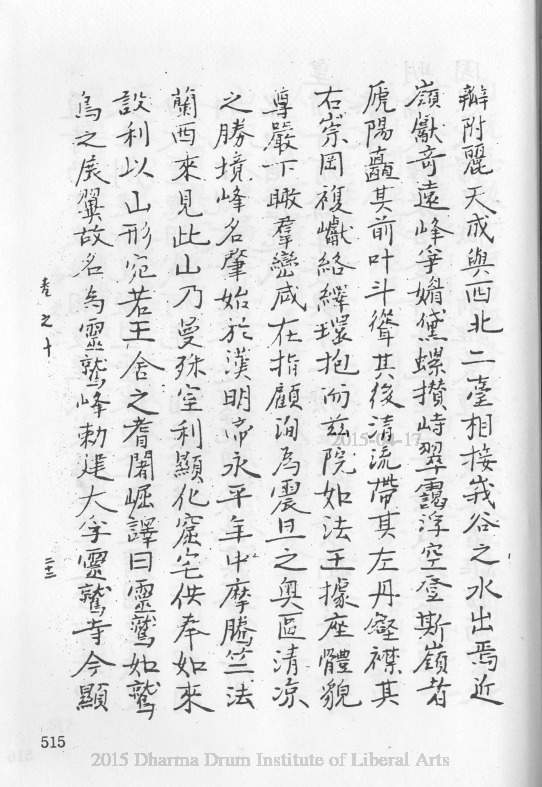 辧附麗天成與西北二臺相接峩谷之水出焉近
嶺獻奇遠峰爭媚黛螺攅峙翠靄浮空登斯嶺者
虒陽矗其前叶斗聳其後清流帶其左丹壑襟其
右崇岡複巘絡繹環抱而茲院如法王據座體貌
尊嚴下瞰羣巒咸在指顧洵為震旦之奧區清凉
之勝境峰名肇始於漢明帝永平年中摩騰竺法
蘭西來見此山乃曼殊室利顯化窟宅供奉如來
設利以山形宛若王舍之耆闍崛譯曰靈鷲如鷲
鳥之展翼故名為靈鷲峰勅建大孚靈鷲寺今顯
卷之十
二十三
515
2015-04-17
2015 Dharma Drum Institute of Liberal Arts